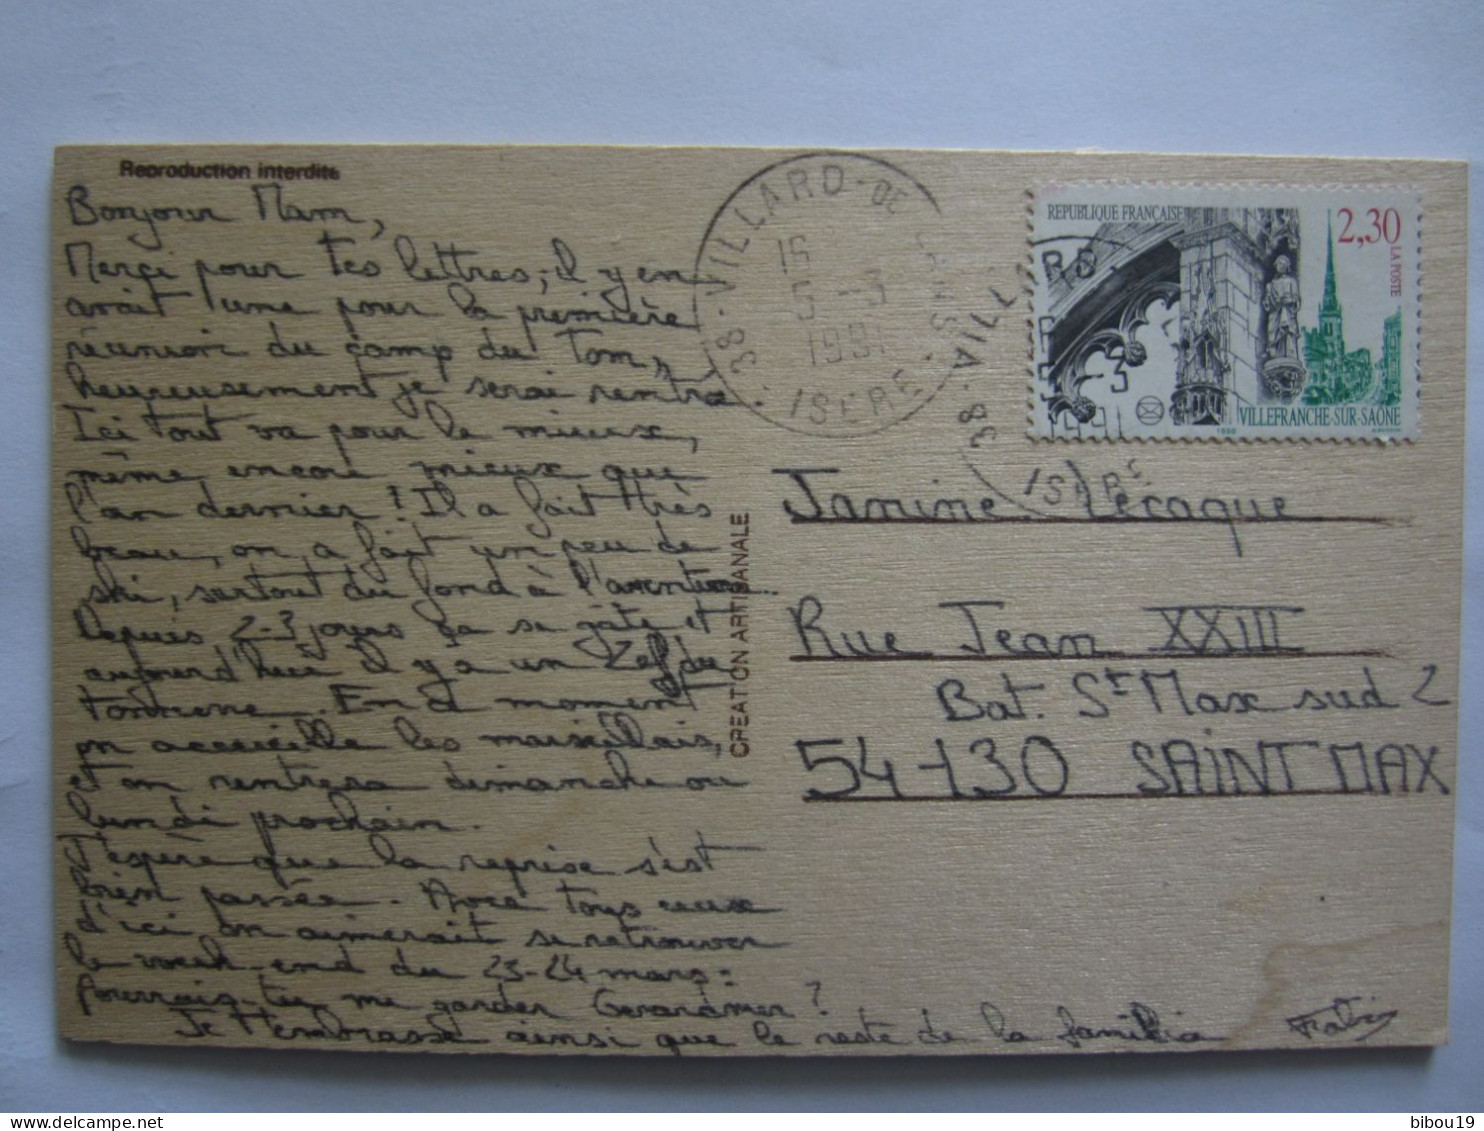 Reproduction interdite
Bonjour Mam,
Merçi pour tes lettres, il y en
avait une pour la première
réunion du camp du Tom,
heureusement je serai rentré.
Ici tout va pour le mieux,
même encore mieux que
l'an dernier ! Il a fait très
beau, on a fait un peu de
ski, surtout du fond à l'aventure !
Depuis 2-3 jours ça se gâte et
aujourd'hui il y a un
tonnerre. En ce moment
on accueille les marseillais,
et on rentrera dimanche ou
lundi prochain.
J'espère que la reprise s'est
bien passée. Avec tous ceux
d'ici on aimerait se retrouver
le week-end du 23-24 mars :
pourrais-tu me garder Gerardmer ?
Je t'embrasse ainsi que le reste de la familia Fabien
CREATION ARTISANALE
38 - VILLARD-DE-LANS
5 - 3
1991
ISERE
REPUBLIQUE FRANÇAISE
2,30
LA POSTE
1990
VILLEFRANCHE-SUR-SAÔNE
Janine Lecaque
Rue Jean XXIII
Bat. St Max sud 2
54130 SAINT MAX
bibou19